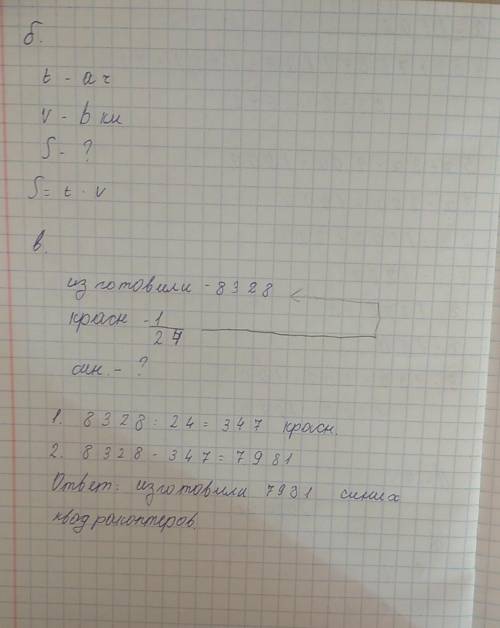 б.
t - а ч
v - b км
S - ?
S = t · v
в.
изготовили - 8328
красн - 1/24
син. - ?
1. 8328 : 24 = 347 красн.
2. 8328 - 347 = 7981
Ответ: изготовили 7931 синих
квадрокоптеров.